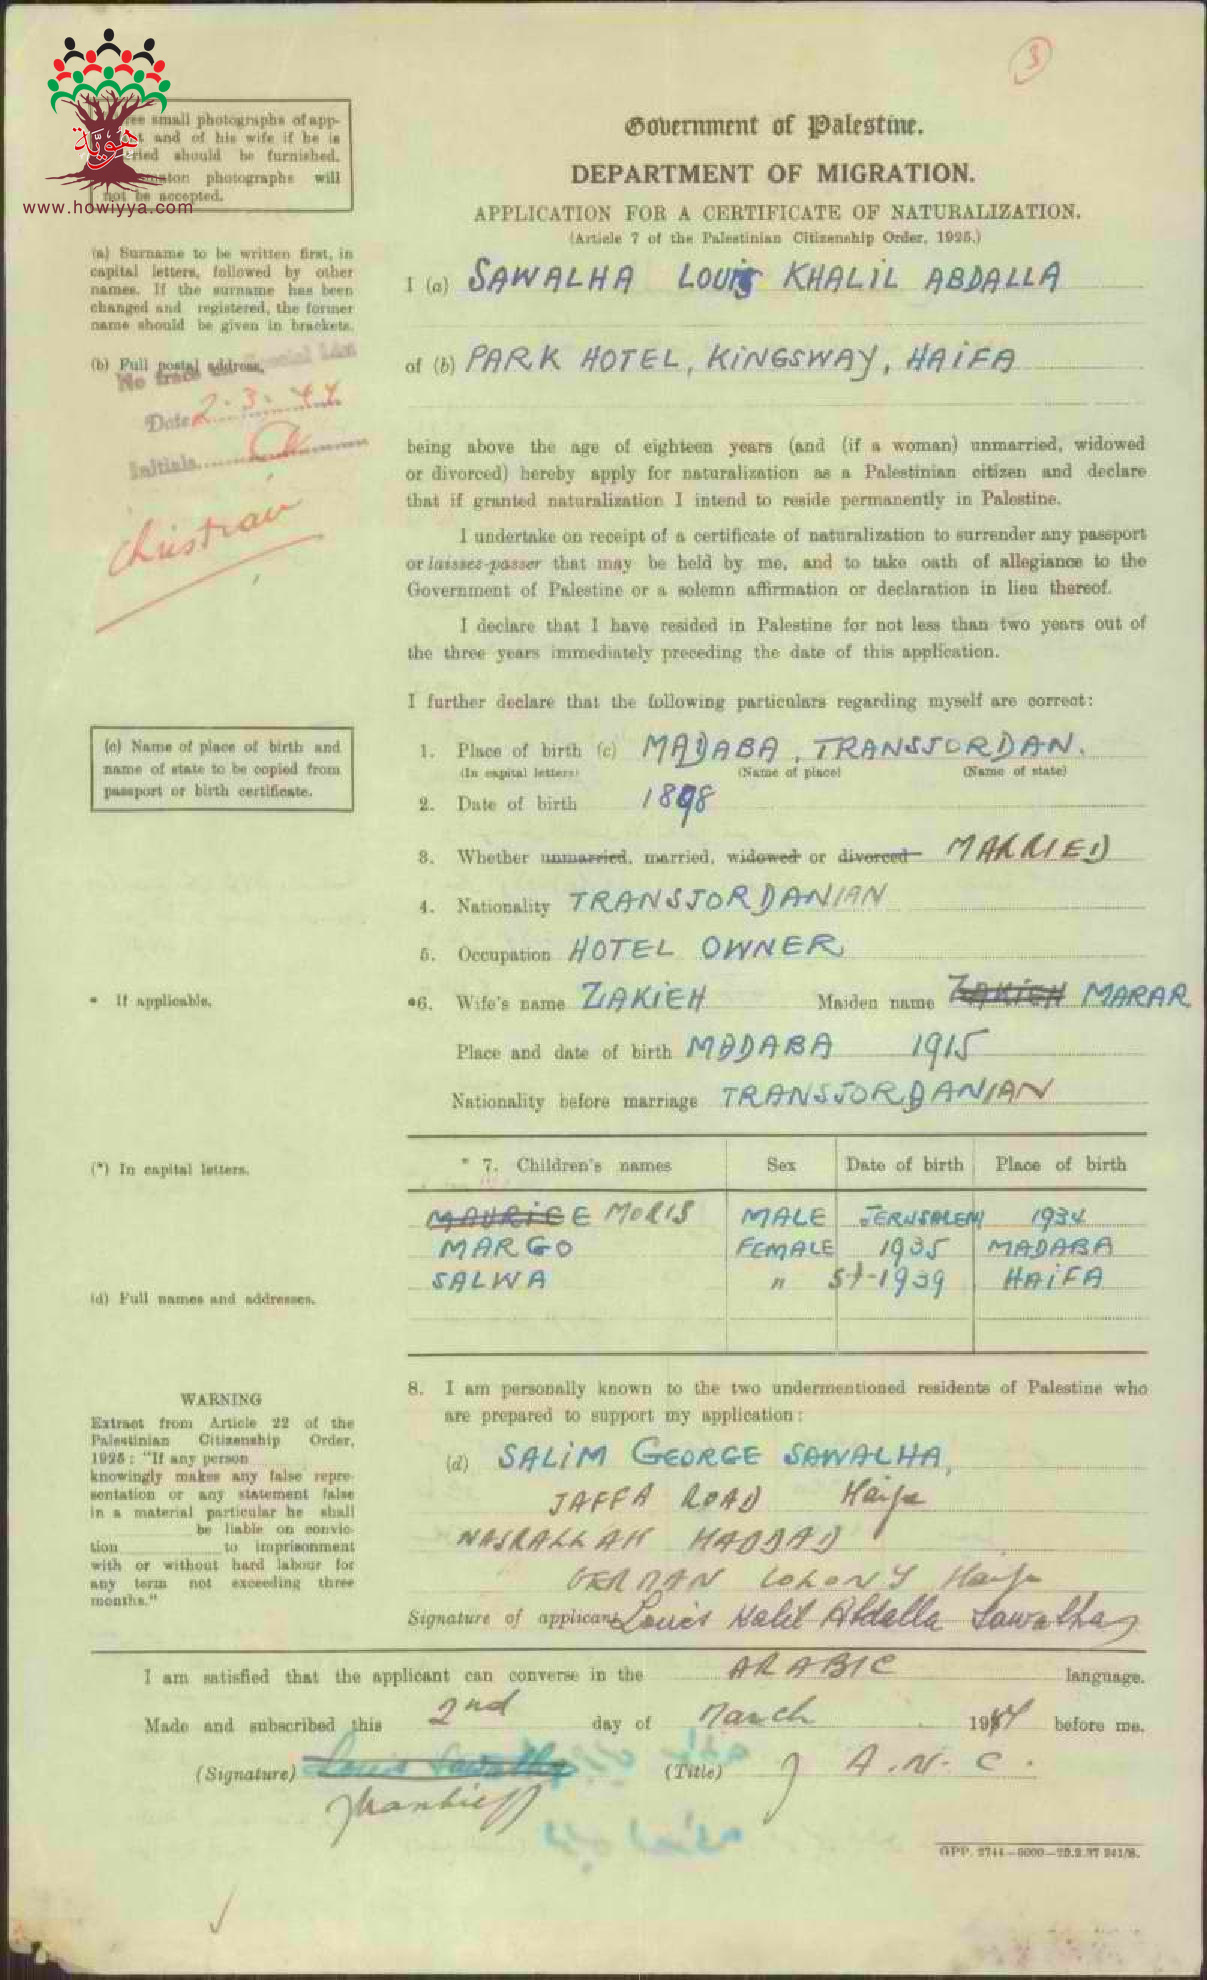 3
هوية
www.howiyya.com
small photographs of app-
and of his wife if he is
should be furnished.
photographs will
not be accepted.
Government of Palestine.
DEPARTMENT OF MIGRATION.
APPLICATION FOR A CERTIFICATE OF NATURALIZATION.
(Article 7 of the Palestinian Citizenship Order, 1925.)
(a) Surname to be written first, in
capital letters, followed by other
names. If the surname has been
changed and registered, the former
name should be given in brackets.
I (a) SAWALHA LOUIS KHALIL ABDALLA
(b) Full postal address.
of (b) PARK HOTEL, KINGSWAY, HAIFA
No trace Special List
Date 2.3.44
Initials
Christian
being above the age of eighteen years (and (if a woman) unmarried, widowed
or divorced) hereby apply for naturalization as a Palestinian citizen and declare
that if granted naturalization I intend to reside permanently in Palestine.
I undertake on receipt of a certificate of naturalization to surrender any passport
or laisses-passer that may be held by me, and to take oath of allegiance to the
Government of Palestine or a solemn affirmation or declaration in lieu thereof.
I declare that I have resided in Palestine for not less than two years out of
the three years immediately preceding the date of this application.
I further declare that the following particulars regarding myself are correct:
(c) Name of place of birth and
name of state to be copied from
passport or birth certificate.
1. Place of birth (c) MADABA, TRANSJORDAN.
(In capital letters) (Name of place) (Name of state)
2. Date of birth 1898
3. Whether unmarried, married, widowed or divorced MARRIED
4. Nationality TRANSJORDANIAN
5. Occupation HOTEL OWNER
* If applicable.
*6. Wife's name ZAKIEH Maiden name ZAKIEH MARAR
Place and date of birth MADABA 1915
Nationality before marriage TRANSJORDANIAN
(*) In capital letters.
* 7. Children's names Sex Date of birth Place of birth
MAURICE MORIS MALE JERUSALEM 1934
MARGO FEMALE 1935 MADABA
SALWA " 1939 HAIFA
(d) Full names and addresses.
8. I am personally known to the two undermentioned residents of Palestine who
are prepared to support my application:
(d) SALIM GEORGE SAWALHA,
JAFFA ROAD Haifa
NASRALLAH HADDAD
GERMAN COLONY Haifa
WARNING
Extract from Article 22 of the
Palestinian Citizenship Order,
1925: "If any person
knowingly makes any false repre-
sentation or any statement false
in a material particular he shall
be liable on convic-
tion to imprisonment
with or without hard labour for
any term not exceeding three
months."
Signature of applicant Louis Kalil Abdalla Sawalha
I am satisfied that the applicant can converse in the ARABIC language.
Made and subscribed this 2nd day of March 1944 before me.
(Signature) Louis Sawalha (Title) A.N.C.
GPP. 2744—6000—22.2.37 241/8.